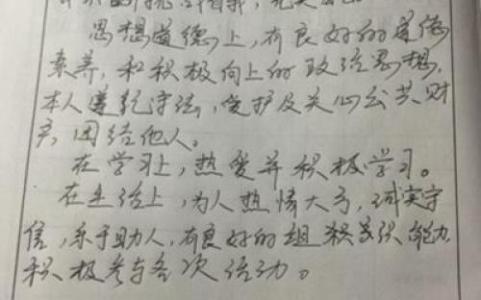 思想道德上，有良好的道德
素养，和积极向上的政治思想，
本人遵纪守法，爱护及关心公共财
产，团结他人。
在学习上，热爱并积极学习。
在生活上，为人热情大方，诚实守
信，乐于助人，有良好的组织能力
积极参与各次活动。